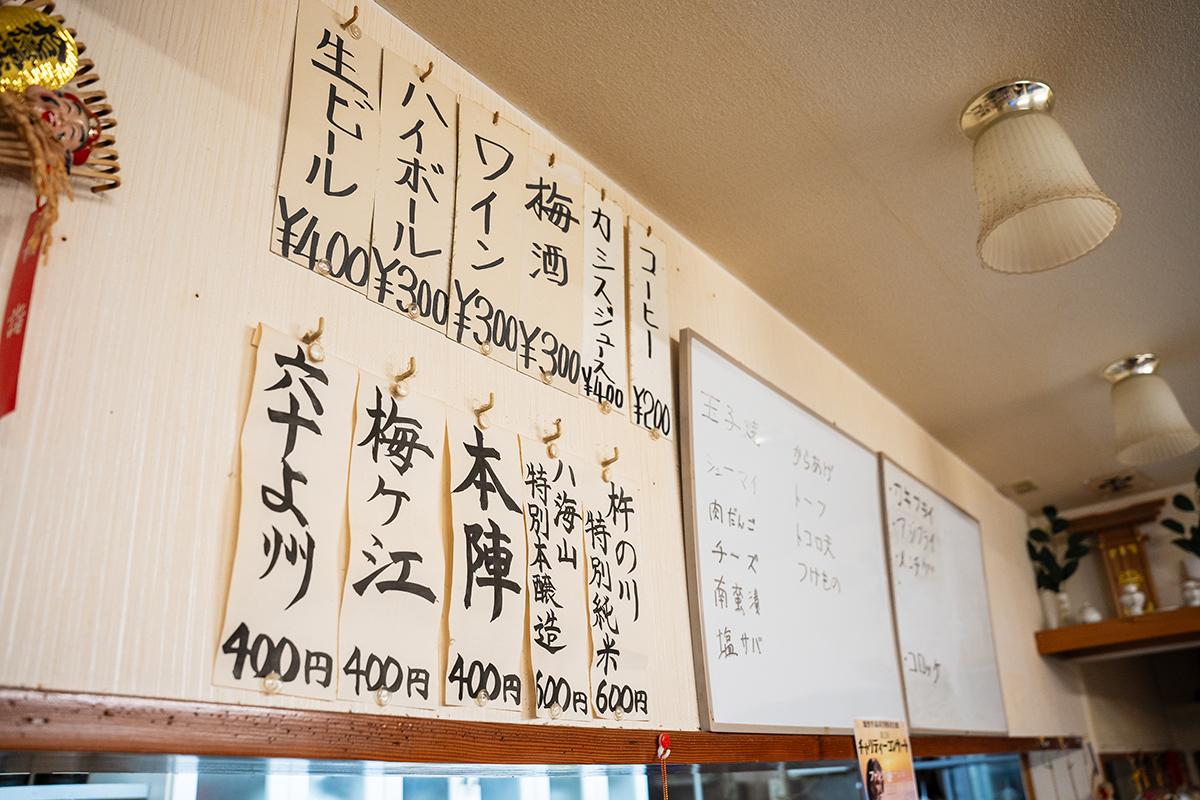 生ビール
¥400
ハイボール
¥300
ワイン
¥300
梅酒
¥300
カシスジュース
¥400
コーヒー
¥200
六十よ州
400円
梅ケ江
400円
本陣
400円
八海山
特別本醸造
600円
杵の川
特別純米
600円
玉子焼
シューマイ
肉だんご
チーズ
南蛮漬
塩サバ
からあげ
トーフ
トコロ天
つけもの
・アジフライ
・メンチカツ
・コロッケ
チャリティーコンサート